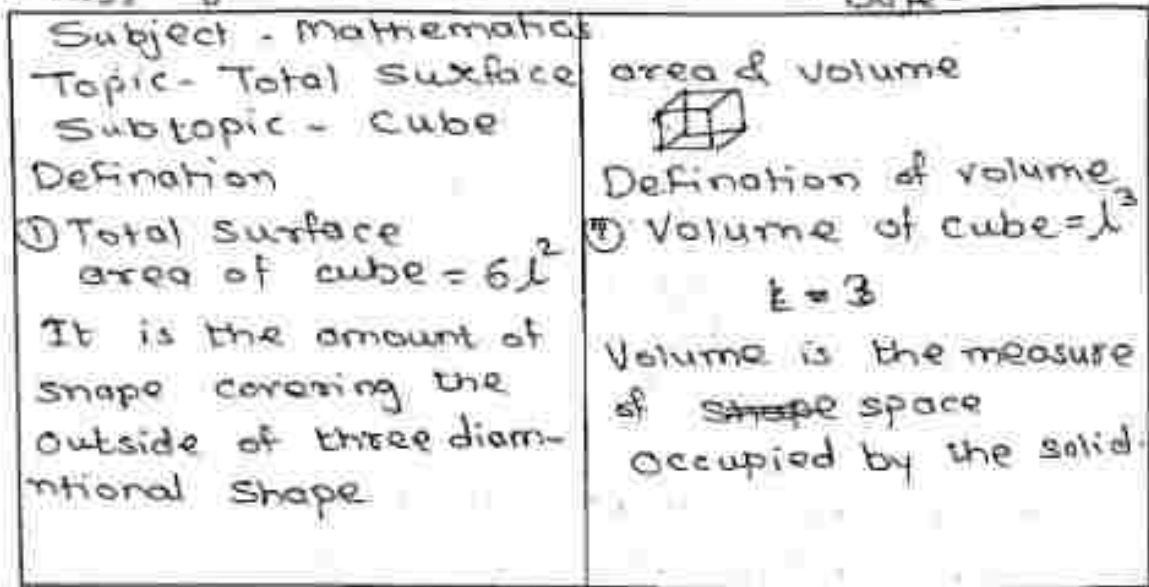 Subject - Mathematics
Topic - Total Surface area & volume
Subtopic - Cube
Defination
① Total Surface
area of cube = 6l²
It is the amount of
snape covering the
outside of three diam-
ntional Shape
Defination of volume
Volume of cube = l³
Volume is the measure
of shape space
occupied by the solid.